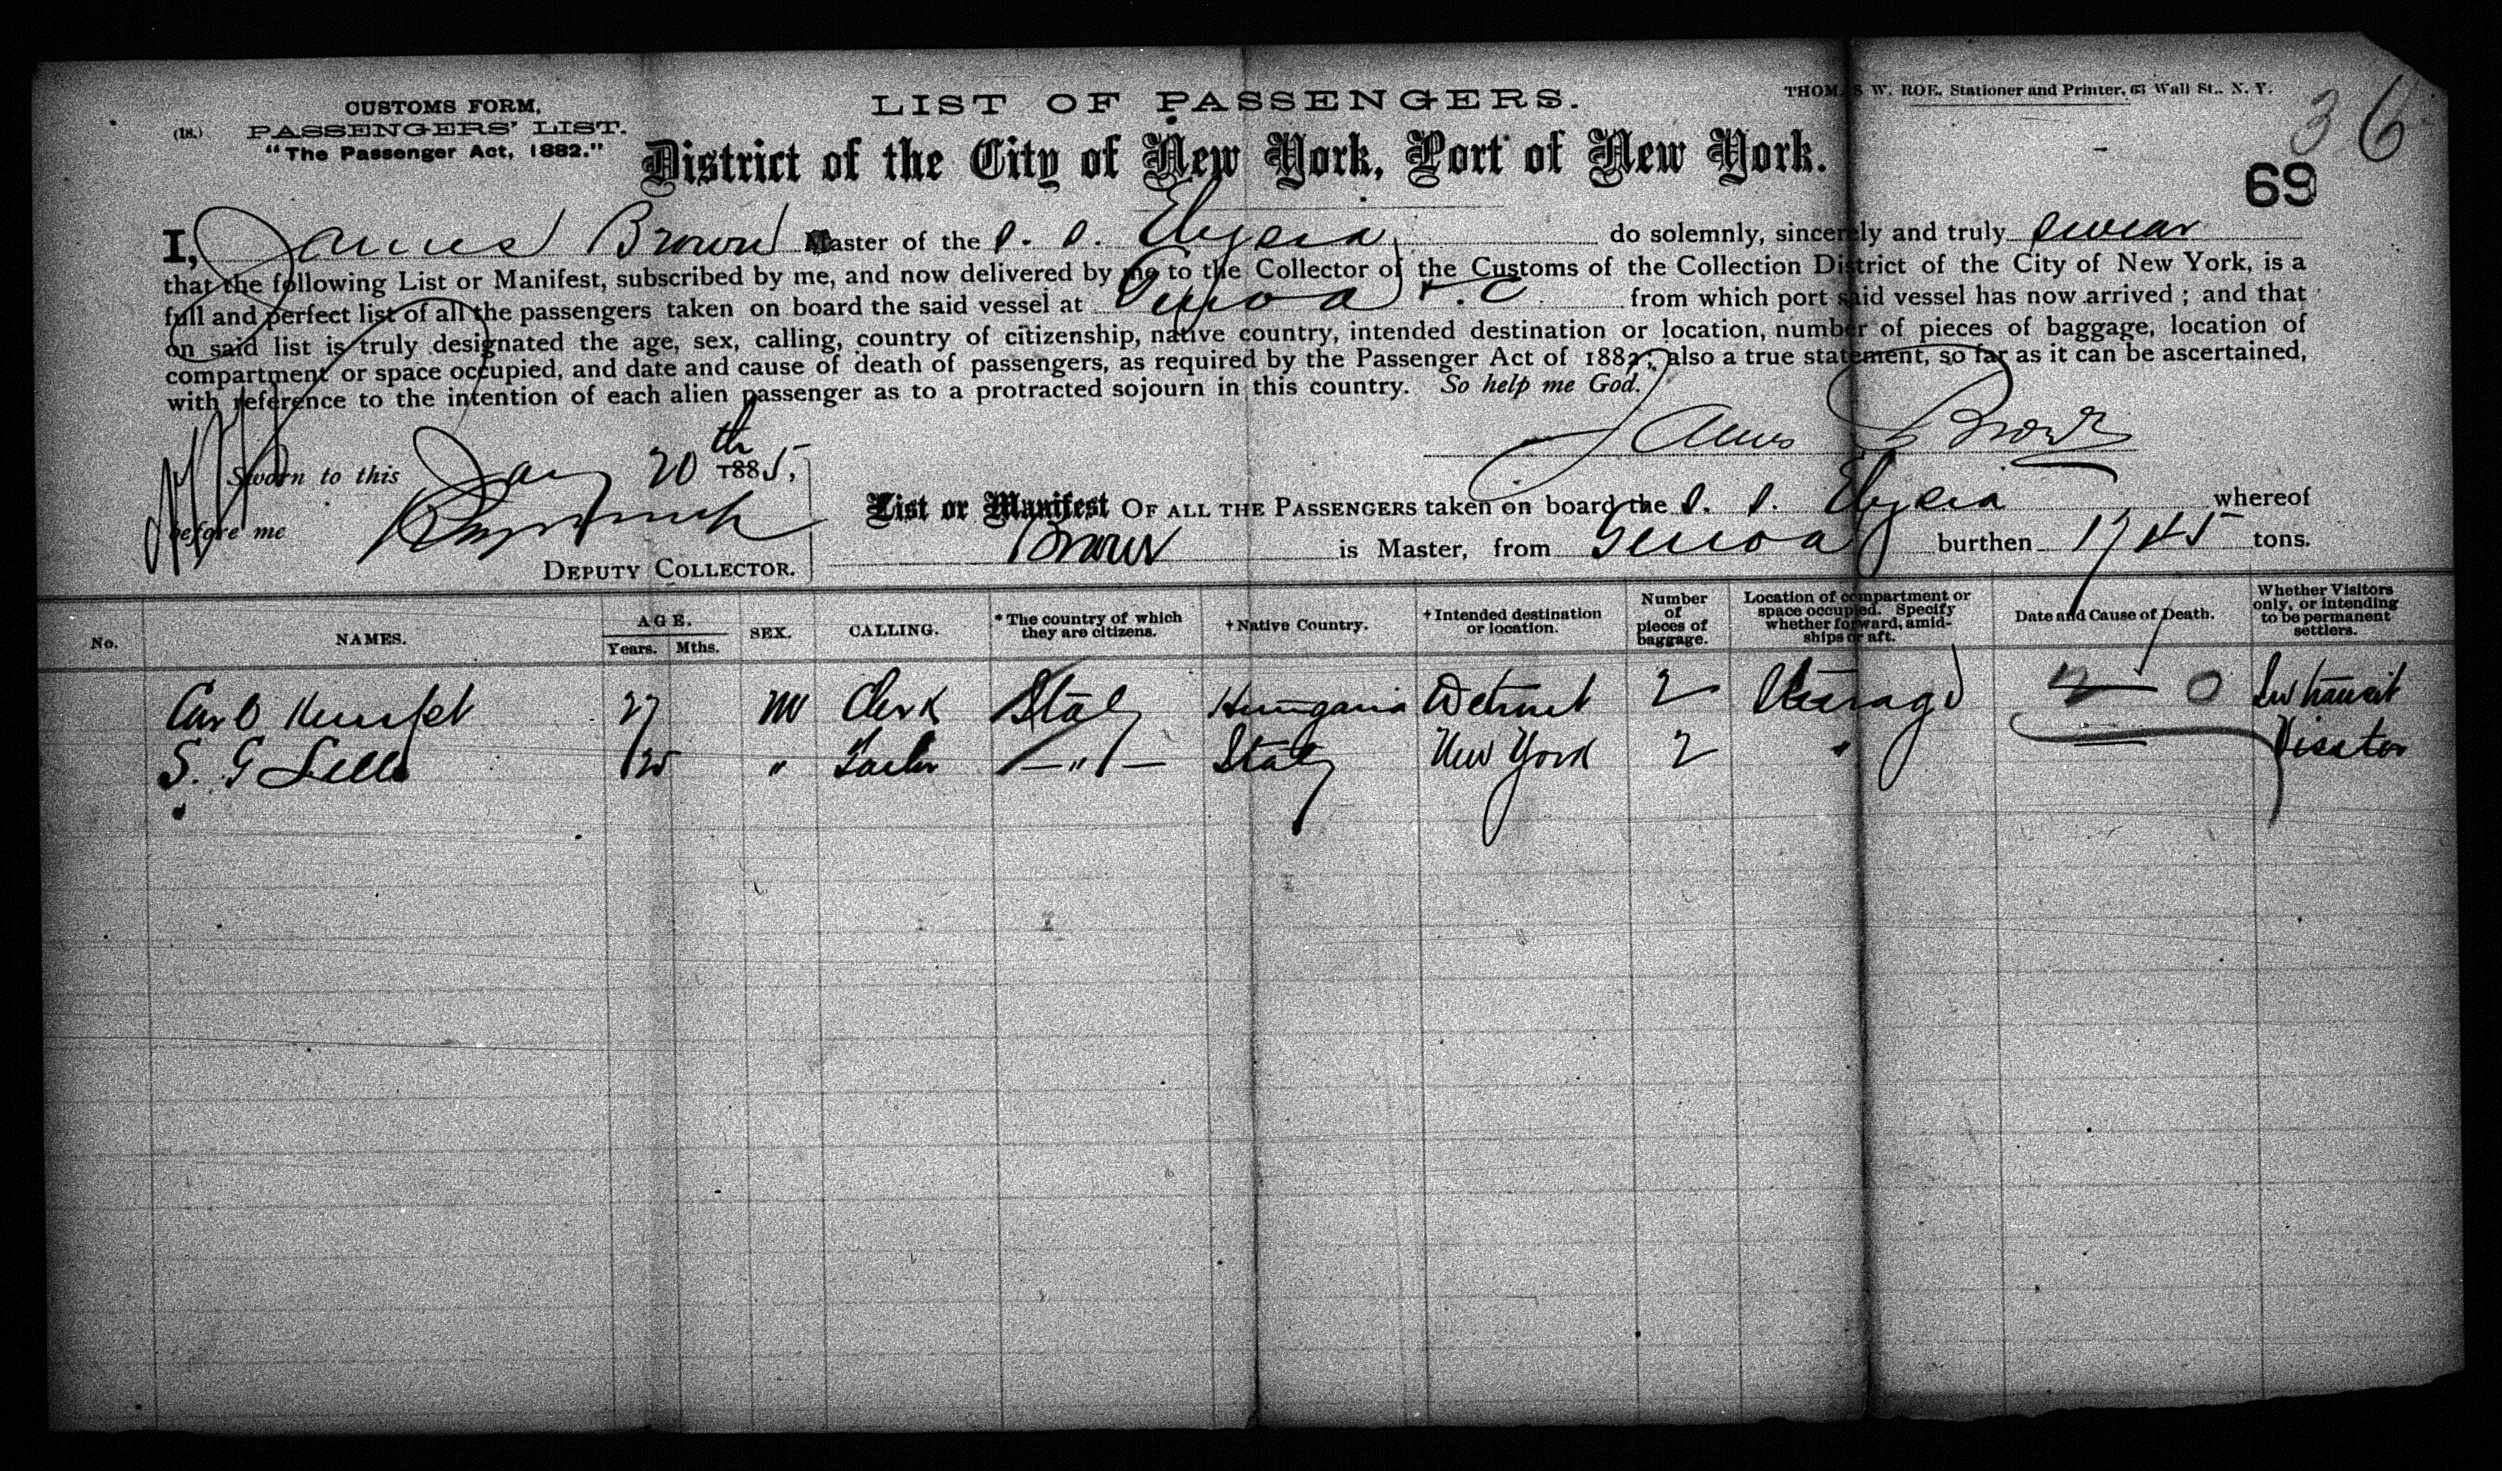 CUSTOMS FORM,
(18.) PASSENGERS' LIST.
"The Passenger Act, 1882."
LIST OF PASSENGERS.
THOMAS W. ROE, Stationer and Printer, 63 Wall St., N. Y.
36
District of the City of New York, Port of New York.
69
I, James Brown Master of the S. S. Elysia do solemnly, sincerely and truly swear
that the following List or Manifest, subscribed by me, and now delivered by me to the Collector of the Customs of the Collection District of the City of New York, is a
full and perfect list of all the passengers taken on board the said vessel at Genoa &c from which port said vessel has now arrived; and that
on said list is truly designated the age, sex, calling, country of citizenship, native country, intended destination or location, number of pieces of baggage, location of
compartment or space occupied, and date and cause of death of passengers, as required by the Passenger Act of 1882; also a true statement, so far as it can be ascertained,
with reference to the intention of each alien passenger as to a protracted sojourn in this country. So help me God.
James Brown
Sworn to this Jany 20th 1885,
before me
DEPUTY COLLECTOR.
List or Manifest OF ALL THE PASSENGERS taken on board the S. S. Elysia whereof
Brown is Master, from Genoa burthen 1745 tons.
No. NAMES. AGE. Years. Mths. SEX. CALLING. *The country of which they are citizens. †Native Country. †Intended destination or location. Number of pieces of baggage. Location of compartment or space occupied. Specify whether forward, amidships or aft. Date and Cause of Death. Whether Visitors only, or intending to be permanent settlers.
Carl 27 M Clerk Italy Hungaria Detroit 2 Steerage 2 0 In transit
S. G " Tailor — " — Italy New York 2 " Visitor